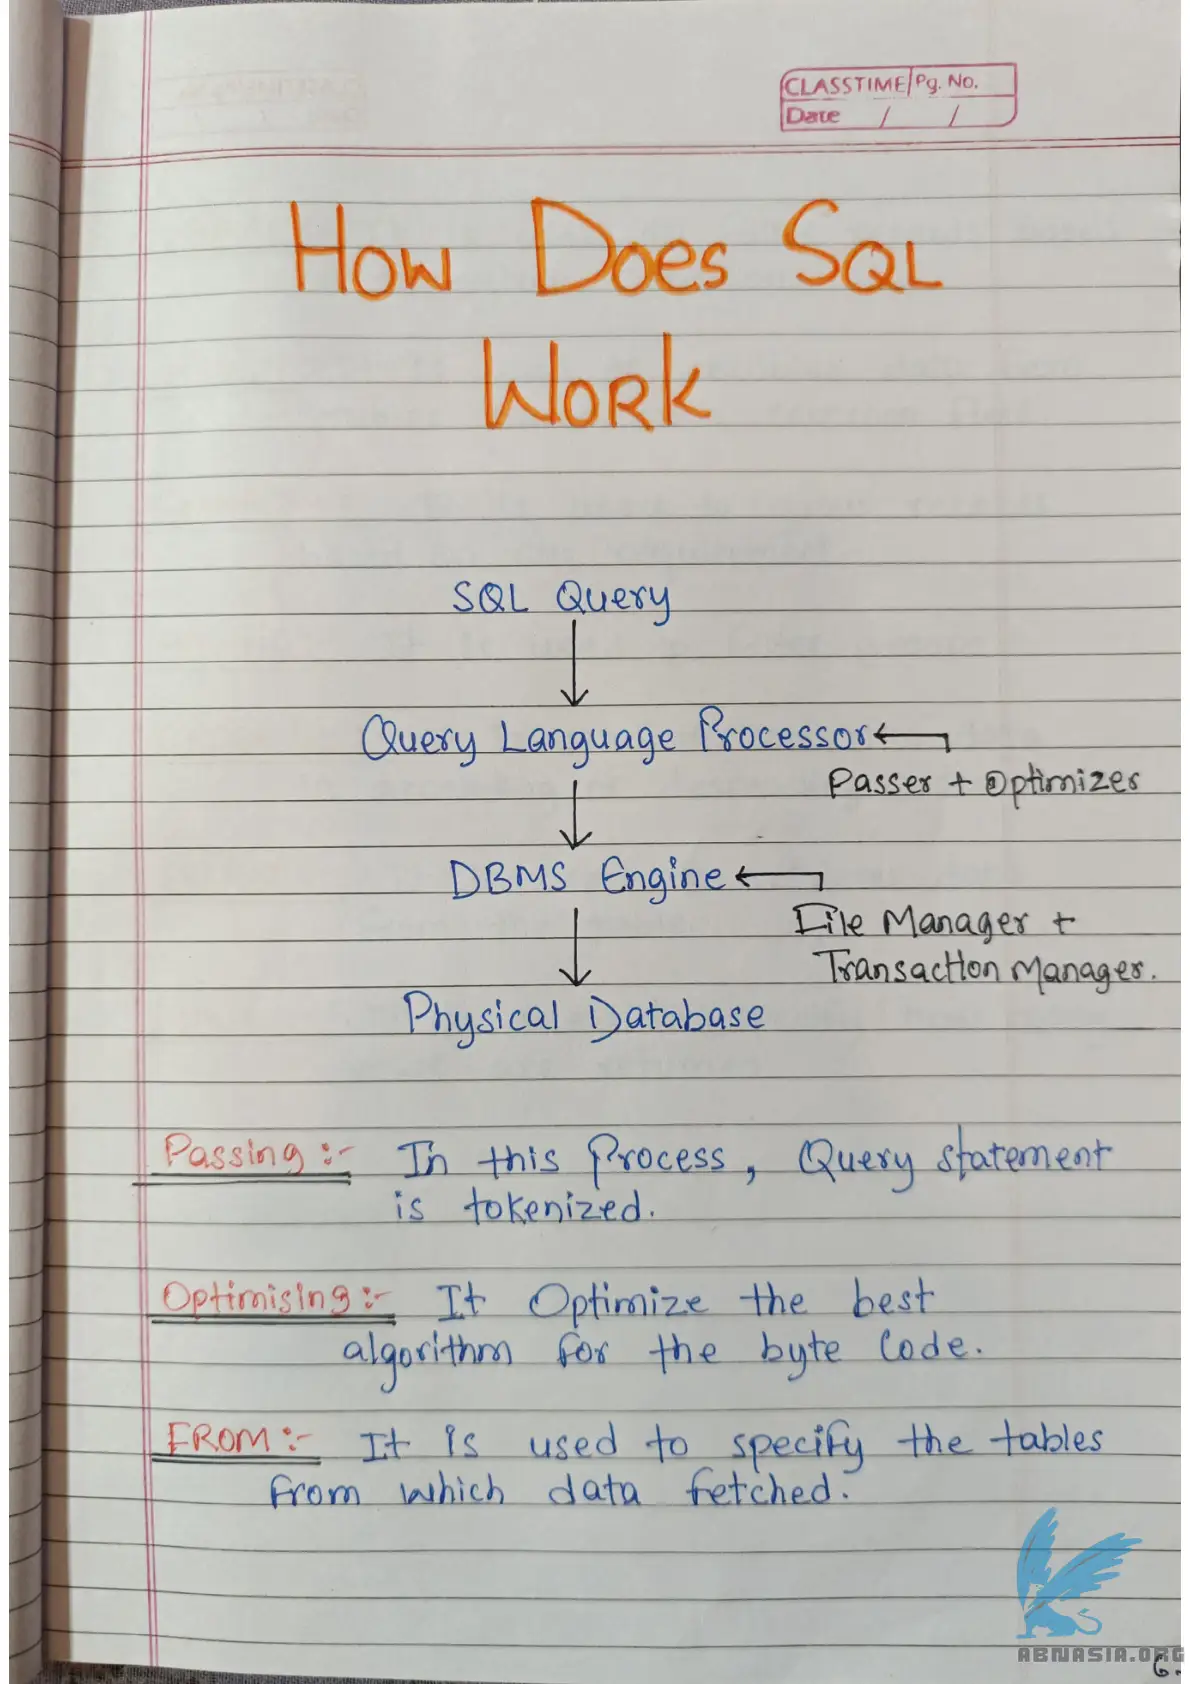 CLASSTIME Pg. No.
Date / /
How Does SQL
Work
SQL Query
Query Language Processor
Passer + Optimizer
DBMS Engine
File Manager +
Transaction Manager.
Physical Database
Passing :- In this Process, Query statement
is tokenized.
Optimising :- It Optimize the best
algorithm for the byte Code.
FROM :- It is used to specify the tables
from which data fetched.
ABNASIA.ORG
6.